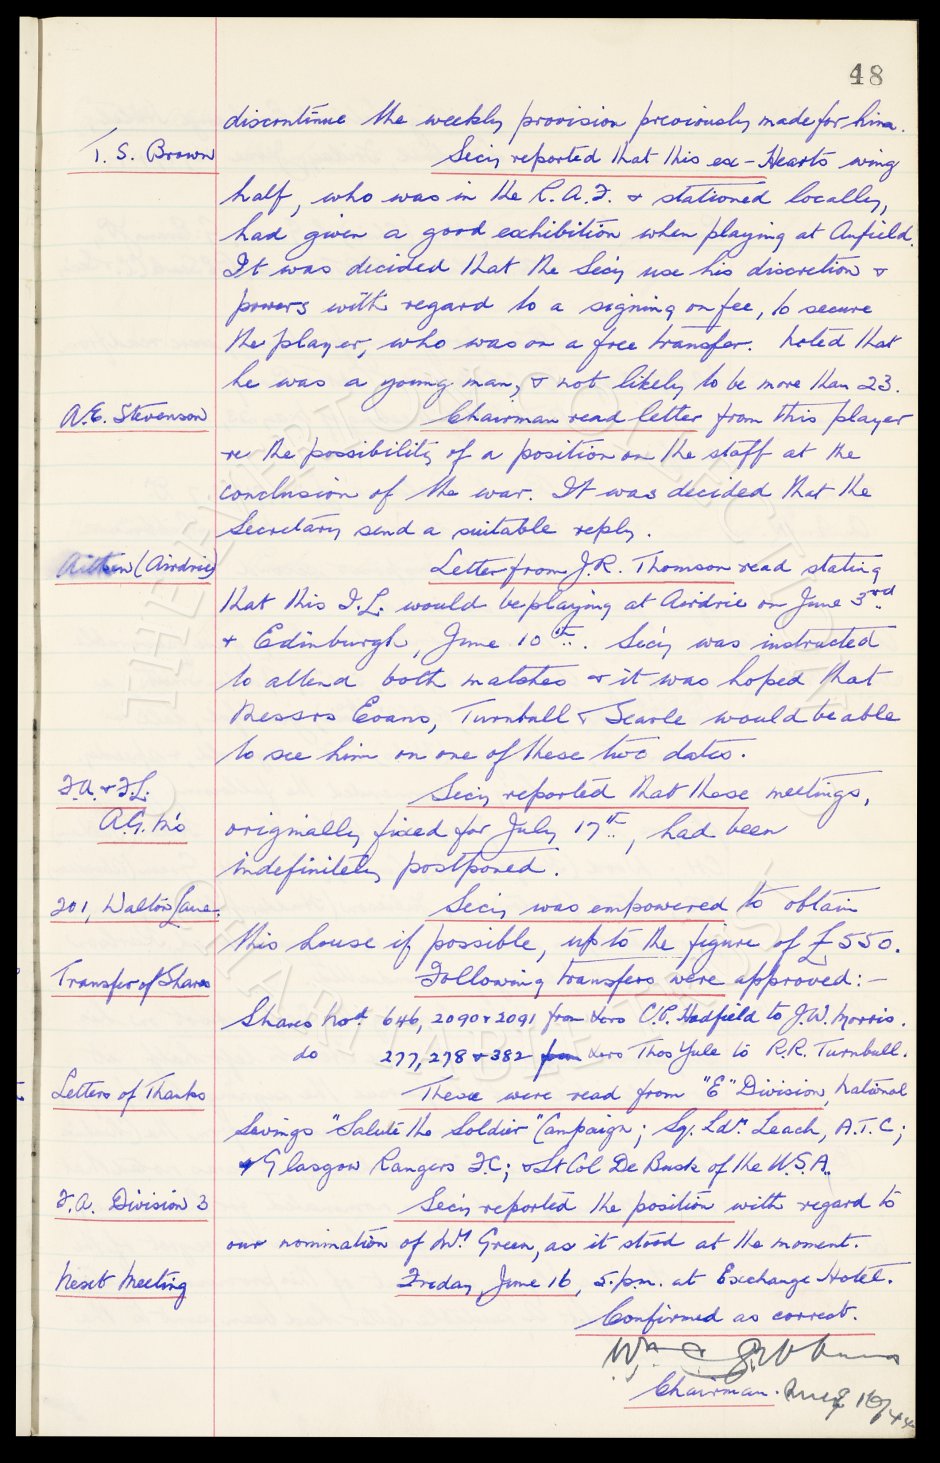 48
discontinue the weekly provision previously made for him.
T. S. Brown Secy reported that this ex-Hearts wing
half, who was in the R.A.F. & stationed locally,
had given a good exhibition when playing at Anfield.
It was decided that the Secy use his discretion &
powers with regard to a signing on fee, to secure
the player, who was on a free transfer. Noted that
he was a young man, & not likely to be more than 23.
A.E. Stevenson Chairman read letter from this player
re the possibility of a position on the staff at the
conclusion of the war. It was decided that the
Secretary send a suitable reply.
Aitken (Airdrie) Letter from J.R. Thomson read stating
that this I.L. would be playing at Airdrie on June 3rd
& Edinburgh, June 10th. Secy was instructed
to attend both matches & it was hoped that
Messrs Evans, Turnbull & Searle would be able
to see him on one of these two dates.
F.A. & F.L. Secy reported that these meetings,
A.G.M's originally fixed for July 17th, had been
indefinitely postponed.
201, Walton Lane. Secy was empowered to obtain
this house if possible, up to the figure of £550.
Transfer of Shares Following transfers were approved:-
Shares Nod. 646, 2090 & 2091 from Exrs C.P. Hadfield to J.W. Morris.
do 277, 278 & 382 from Exrs Thos Yule to R.R. Turnbull.
Letters of Thanks These were read from "E" Division, National
Savings "Salute the Soldier" Campaign; Sq. Ldr. Leach, A.T.C;
Glasgow Rangers F.C; & Lt Col De Busk of the U.S.A.
F.A. Division 3 Secy reported the position with regard to
our nomination of Mr. Green, as it stood at the moment.
Next Meeting Friday, June 16, 5.p.m. at Exchange Hotel.
Confirmed as correct.
Chairman.
THE EVERTON COLLECTION
CHARITABLE TRUST